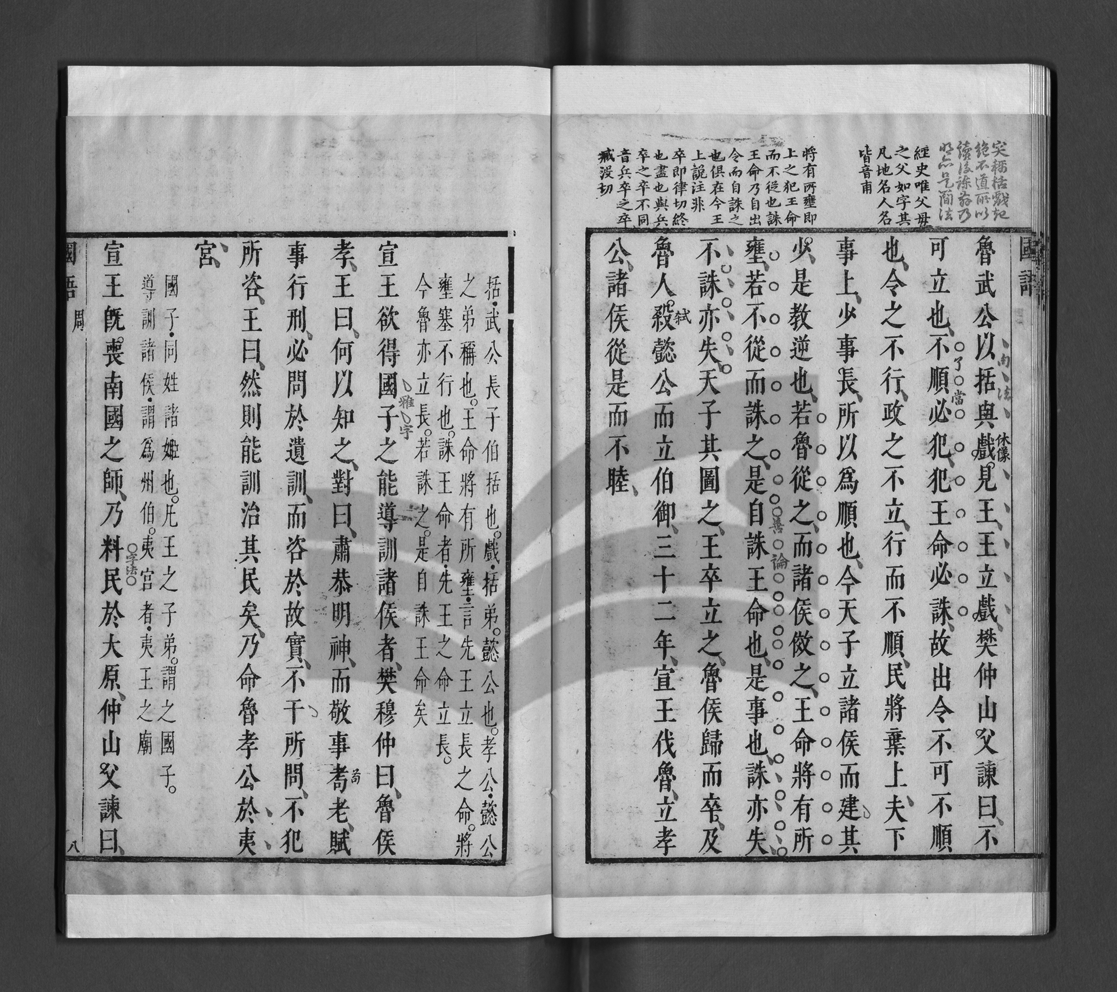 突稱括戲記
絕不道所以
讀後諫辭乃
明亦是簡法
經史唯父母
之父如字其
凡地名人名
皆音甫
將有所壅即
上之犯王命
而不從也誅
王命乃自出
令而自誅之
也俱在今王
上說注非
卒即律切終
也盡也與兵
卒之卒不同
音兵卒之卒
臧沒切
國語
魯武公以括與戲見王王立戲樊仲山父諫曰不
向法
休儀
可立也不順必犯犯王命必誅故出令不可不順
了當
也令之不行政之不立行而不順民將棄上夫下
事上少事長所以爲順也今天子立諸侯而建其
少是教逆也若魯從之而諸侯傚之王命將有所
壅若不從而誅之是自誅王命也是事也誅亦失
善論
不誅亦失天子其圖之王卒立之魯侯歸而卒及
魯人殺懿公而立伯御三十二年宣王伐魯立孝
弒
公諸侯從是而不睦
括武公長子伯括也戲括弟懿公也孝公懿公
之弟稱也王命將有所壅言先王立長之命將
壅塞不行也誅王命者先王之命立長
今魯亦立長若誅之是自誅王命矣
宣王欲得國子之能導訓諸侯者樊穆仲曰魯侯
雅字
孝王曰何以知之對曰肅恭明神而敬事耈老賦
苟
事行刑必問於遺訓而咨於故實不干所問不犯
所咨王曰然則能訓治其民矣乃命魯孝公於夷
宮
國子同姓諸姬也凡王之子弟謂之國子
導訓諸侯謂爲州伯夷宮者夷王之廟
宣王旣喪南國之師乃料民於大原仲山父諫曰
字法
國語
周
八